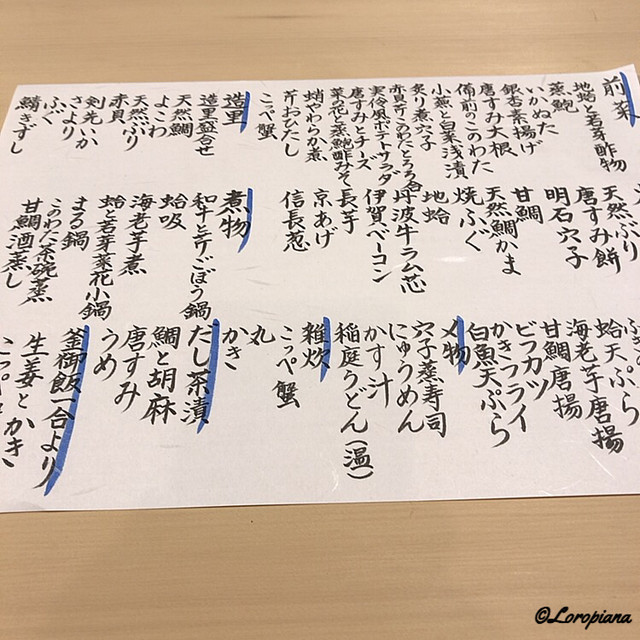 前菜
地蛤と若芽酢物
蒸鮑
いかぬた
銀杏素揚げ
唐すみ大根
備前のこのわた
小蕪と白菜浅漬
炙り煮穴子
赤貝芹このわたとろろ
実伶風ポテトサラダ
唐すみとチーズ
菜の花と蒸鮑酢みそ
蛸やわらか煮
芹おひたし
こっぺ蟹
造里
造里盛合せ
天然鯛
よこわ
天然ぶり
赤貝
剣先いか
さより
ふぐ
鯖きずし
天然ぶり
唐すみ餅
明石穴子
甘鯛
天然鯛かま
焼ふぐ
地蛤
丹波牛ラム芯
伊賀ベーコン
長芋
京あげ
信長葱
煮物
和牛と芹ごぼう鍋
蛤吸
海老芋煮
蛤と若芽菜花小鍋
まる鍋
このわた茶碗蒸
甘鯛酒蒸し
蛤天ぷら
海老芋唐揚
甘鯛唐揚
ビフカツ
かきフライ
白魚天ぷら
〆物
穴子蒸寿司
にゅうめん
かす汁
稲庭うどん(温)
雑炊
こっぺ蟹
丸
かき
だし茶漬
鯛と胡麻
唐すみ
うめ
釜御飯一合より
生姜とかき
©Loropiana